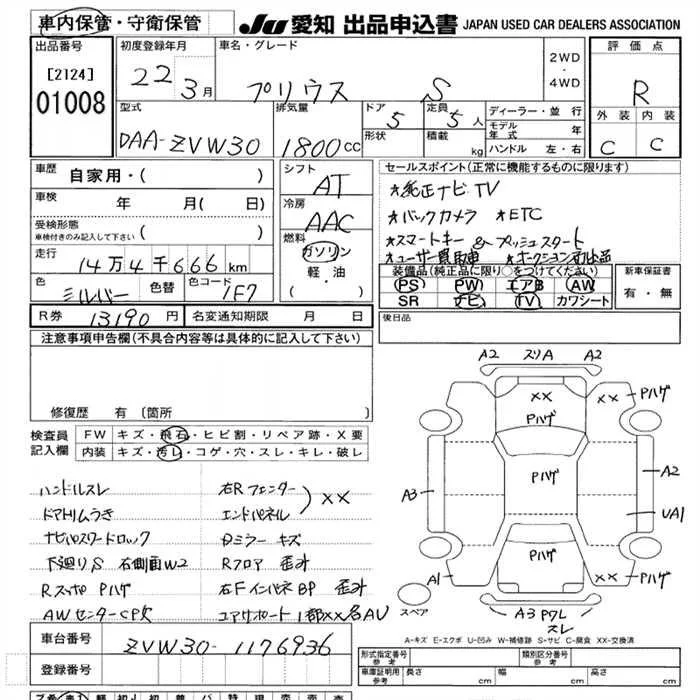 車内保管・守衛保管 JU 愛知 出品申込書 JAPAN USED CAR DEALERS ASSOCIATION
出品番号 初度登録年月 車名・グレード 2WD・4WD 評価点
[2124] 22 3月 プリウス S R
01008
型式 排気量 ドア 5 定員 5人 ディーラー・並行 外装 内装
DAA-ZVW30 1800cc 形状 積載 kg モデル年式 年 C C
ハンドル 左・右
車歴 自家用・( ) シフト AT セールスポイント(正常に機能するものに限ります)
車検 年 月( 日) 冷房 AAC *純正ナビTV
受検形態 *バックカメラ *ETC
車検付きのみ記入して下さい ( ) 燃料 *スマートキー & プッシュスタート
走行 14万4千666km ガソリン *ユーザー買取車 *オークション初出品
軽油 装備品(純正品に限り○をつけてください) 新車保証書
色 シルバー 色替 色コード 1F7 ・( ) PS PW エアB AW 有・無
SR ナビ TV カワシート
R券 13190円 名変通知期限 月 日 後日品
注意事項申告欄(不具合内容等は具体的に記入して下さい)
修復歴 有 〔箇所
検査員記入欄 FW キズ・飛石・ヒビ割・リペア跡・X要
内装 キズ・汚レ・コゲ・穴・スレ・キレ・破レ
ハンドルスレ 右Rフェンダー
ドアトリムうき エンドパネル ××
ナビパスワードロック Dミラー キズ
下廻りS 右側面W2 Rフロア 歪み
Rスポボ Pハゲ 右Fインパネ BP 歪み
AWセンターCP欠 コアサポート 1部××
A2 スリA A2
×× ×× Pハゲ
Pハゲ
A3 Pハゲ A2
UA1
A1 Pハゲ ×× Pハゲ
スペア
A3 Pワレ
スレ
A-キズ E-エクボ U-凹み W-補修跡 S-サビ C-腐食 XX-交換済
車台番号 ZVW30-1176936
登録番号
形式指定番号 参考 類別区分番号 参考
車庫証明用 参考 長さ cm 幅 cm 高さ cm